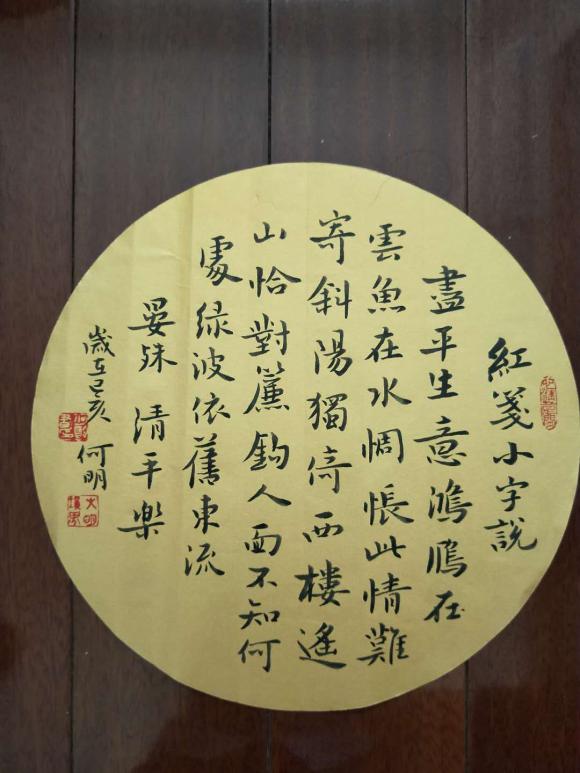 紅箋小字說
盡平生意鴻鴈在
雲魚在水惆悵此情難
寄斜陽獨倚西樓遙
山恰對簾鈎人面不知何
處緑波依舊東流
晏殊 清平樂
歲在己亥 何明